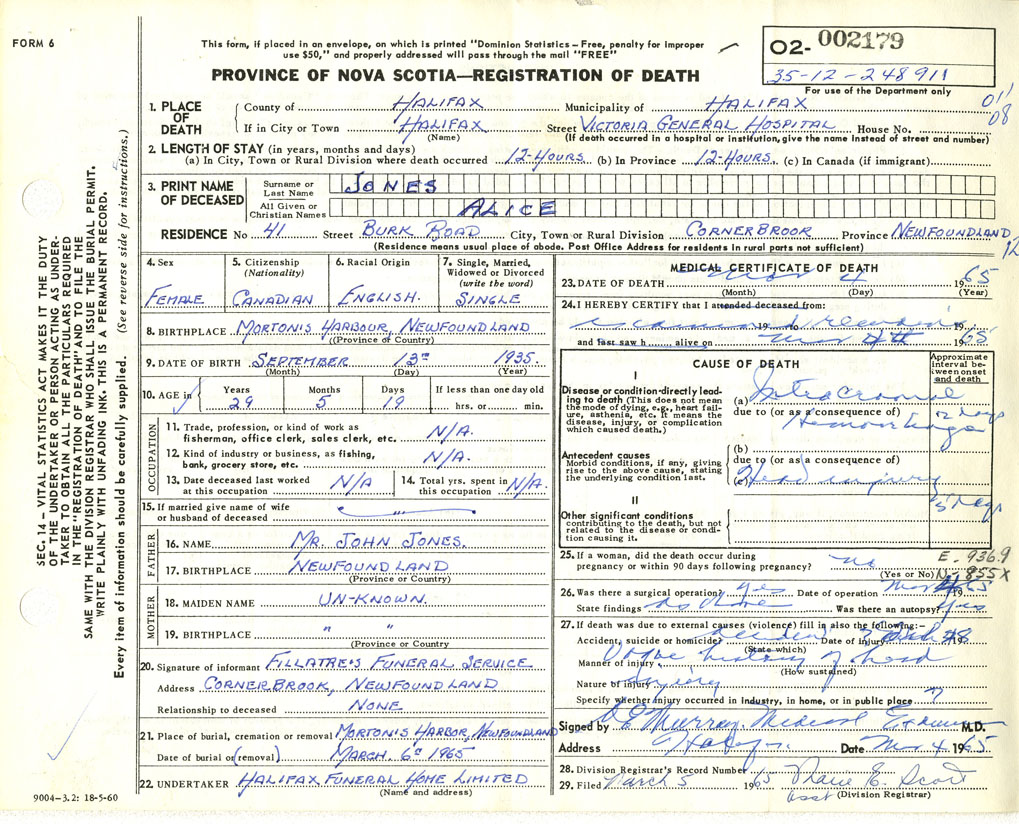 FORM 6
This form, if placed in an envelope, on which is printed "Dominion Statistics – Free, penalty for improper
use $50," and properly addressed will pass through the mail "FREE"
PROVINCE OF NOVA SCOTIA—REGISTRATION OF DEATH
02- 002179
35-12-248911
For use of the Department only
011
08
1. PLACE OF DEATH
County of HALIFAX Municipality of HALIFAX
If in City or Town HALIFAX Street VICTORIA GENERAL HOSPITAL House No.
(Name) (If death occurred in a hospital or institution, give the name instead of street and number)
2. LENGTH OF STAY (in years, months and days)
(a) In City, Town or Rural Division where death occurred 12-HOURS. (b) In Province 12-HOURS. (c) In Canada (if immigrant)
3. PRINT NAME OF DECEASED
Surname or Last Name JONES
All Given or Christian Names ALICE
RESIDENCE No 41 Street BURK ROAD City, Town or Rural Division CORNERBROOK Province NEWFOUNDLAND
(Residence means usual place of abode. Post Office Address for residents in rural parts not sufficient)
12
4. Sex FEMALE
5. Citizenship (Nationality) CANADIAN
6. Racial Origin ENGLISH.
7. Single, Married, Widowed or Divorced (write the word) SINGLE
8. BIRTHPLACE MORTON'S HARBOUR, NEWFOUNDLAND
((Province or Country)
9. DATE OF BIRTH SEPTEMBER 13th 1935.
(Month) (Day) (Year)
10. AGE in Years Months Days If less than one day old
29 5 19 hrs. or min.
OCCUPATION
11. Trade, profession, or kind of work as
fisherman, office clerk, sales clerk, etc. N/A.
12. Kind of industry or business, as fishing,
bank, grocery store, etc. N/A.
13. Date deceased last worked at this occupation N/A
14. Total yrs. spent in this occupation N/A.
15. If married give name of wife
or husband of deceased
FATHER
16. NAME MR. JOHN JONES.
17. BIRTHPLACE NEWFOUNDLAND
(Province or Country)
MOTHER
18. MAIDEN NAME UN-KNOWN.
19. BIRTHPLACE " "
(Province or Country)
20. Signature of informant FILLATRE'S FUNERAL SERVICE
Address CORNERBROOK, NEWFOUNDLAND
Relationship to deceased NONE
21. Place of burial, cremation or removal MORTON'S HARBOR, NEWFOUNDLAND
Date of burial or (removal) MARCH. 6th 1965
22. UNDERTAKER HALIFAX FUNERAL HOME LIMITED
(Name and address)
MEDICAL CERTIFICATE OF DEATH
23. DATE OF DEATH Mar 4 1965
(Month) (Day) (Year)
24. I HEREBY CERTIFY that I attended deceased from:
examined remains
19 to 19
and last saw h alive on Mar 4th 1965
CAUSE OF DEATH
Approximate interval between onset and death
I
Disease or condition directly leading to death (This does not mean the mode of dying, e.g., heart failure, asthenia, etc. It means the disease, injury, or complication which caused death.)
(a) Intracranial
due to (or as a consequence of)
Hemorrhage
Antecedent causes
Morbid conditions, if any, giving rise to the above cause, stating the underlying condition last.
(b)
due to (or as a consequence of)
(c) Head injury
5 days
II
Other significant conditions
contributing to the death, but not related to the disease or condition causing it.
25. If a woman, did the death occur during
pregnancy or within 90 days following pregnancy? no
(Yes or No)
E-936.9
N-855X
26. Was there a surgical operation? yes Date of operation Mar 4 65
State findings as above Was there an autopsy? yes
27. If death was due to external causes (violence) fill in also the following:-
Accident, suicide or homicide? accident Date of injury
(State which)
Manner of injury Vague history of head
(How sustained)
Nature of injury injury
Specify whether injury occurred in Industry, in home, or in public place ?
Signed by Murray. Medical Examiner M.D.
Address Halifax. Date Mar 4. 1965
28. Division Registrar's Record Number
29. Filed March 5 1965 E. Scott
asst (Division Registrar)
SEC. 14 – VITAL STATISTICS ACT MAKES IT THE DUTY
OF THE UNDERTAKER OR PERSON ACTING AS UNDER-
TAKER TO OBTAIN ALL THE PARTICULARS REQUIRED
IN THE "REGISTRATION OF DEATH" AND TO FILE THE
SAME WITH THE DIVISION REGISTRAR WHO SHALL ISSUE THE BURIAL PERMIT.
WRITE PLAINLY WITH UNFADING INK. THIS IS A PERMANENT RECORD.
Every item of information should be carefully supplied. (See reverse side for instructions.)
9004-3.2: 18-5-60